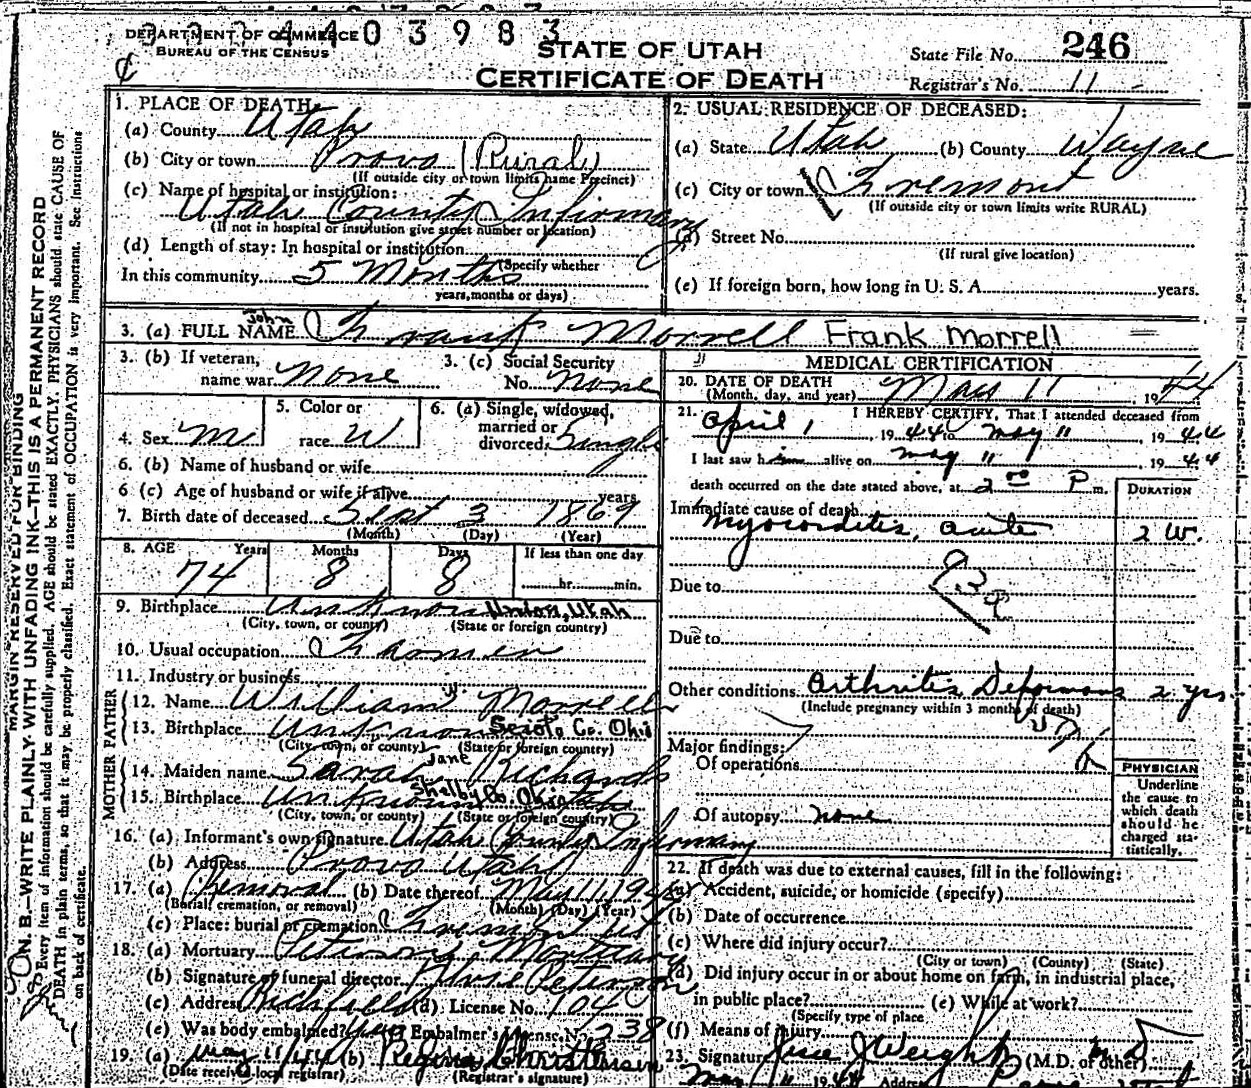 DEPARTMENT OF COMMERCE
BUREAU OF THE CENSUS
403983
STATE OF UTAH
CERTIFICATE OF DEATH
State File No. 246
Registrar's No. 11
1. PLACE OF DEATH:
(a) County Utah
(b) City or town Provo (Rural)
(If outside city or town limits name Precinct)
(c) Name of hospital or institution:
Utah County Infirmary
(If not in hospital or institution give street number or location)
(d) Length of stay: In hospital or institution
(Specify whether
In this community 5 Months
years, months or days)
2. USUAL RESIDENCE OF DECEASED:
(a) State Utah (b) County Wayne
(c) City or town Fremont
(If outside city or town limits write RURAL)
(d) Street No.
(If rural give location)
(e) If foreign born, how long in U. S. A. years.
John
3. (a) FULL NAME Frank Morrell Frank Morrell
3. (b) If veteran, name war None
3. (c) Social Security No. None
4. Sex M
5. Color or race W
6. (a) Single, widowed, married or divorced, Single
6. (b) Name of husband or wife
6 (c) Age of husband or wife if alive years
7. Birth date of deceased Sept 3 1869
(Month) (Day) (Year)
8. AGE Years Months Days If less than one day
74 8 8 hr. min.
9. Birthplace Unknown Union, Utah
(City, town, or county) (State or foreign country)
10. Usual occupation Farmer
11. Industry or business
FATHER
12. Name William Morrell
13. Birthplace Unknown Scioto Co. Ohio
(City, town, or county) (State or foreign country)
MOTHER
14. Maiden name Sarah Jane Richards
15. Birthplace Unknown Shelby Co. Ohio
(City, town, or county) (State or foreign country)
16. (a) Informant's own signature Utah County Infirmary
(b) Address Provo Utah
17. (a) Removal (b) Date thereof May 11 1944
(Burial, cremation, or removal) (Month) (Day) (Year)
(c) Place: burial or cremation Fremont Ut
18. (a) Mortuary Petersons Mortuary
(b) Signature of funeral director Elvie Peterson
(c) Address Richfield (d) License No. 104
(e) Was body embalmed? yes Embalmer's License No. 238
19. (a) May 11/44 (b) Regina Christensen
(Date received local registrar) (Registrar's signature)
MEDICAL CERTIFICATION
20. DATE OF DEATH May 11, 1944
(Month, day, and year)
21. I HEREBY CERTIFY, That I attended deceased from
April 1, 1944 to May 11, 1944
I last saw him alive on May 11, 1944
death occurred on the date stated above, at 2 00 P m.
DURATION
Immediate cause of death
Myocorditis, acute 2 W.
Due to
Due to
Other conditions Arthritis Deformans 2 yrs
(Include pregnancy within 3 months of death)
Major findings:
Of operations
Of autopsy none
PHYSICIAN
Underline
the cause to
which death
should be
charged sta-
tistically.
22. If death was due to external causes, fill in the following:
(a) Accident, suicide, or homicide (specify)
(b) Date of occurrence
(c) Where did injury occur?
(City or town) (County) (State)
(d) Did injury occur in or about home on farm, in industrial place,
in public place? (e) While at work?
(Specify type of place
(f) Means of injury
23. Signature Jesse J Weight (M.D. or other) M D
May 11 1944 Address
MARGIN RESERVED FOR BINDING
N. B.—WRITE PLAINLY WITH UNFADING INK—THIS IS A PERMANENT RECORD
Every item of information should be carefully supplied. AGE should be stated EXACTLY. PHYSICIANS should state CAUSE OF
DEATH in plain terms, so that it may be properly classified. Exact statement of OCCUPATION is very important. See instructions
on back of certificate.